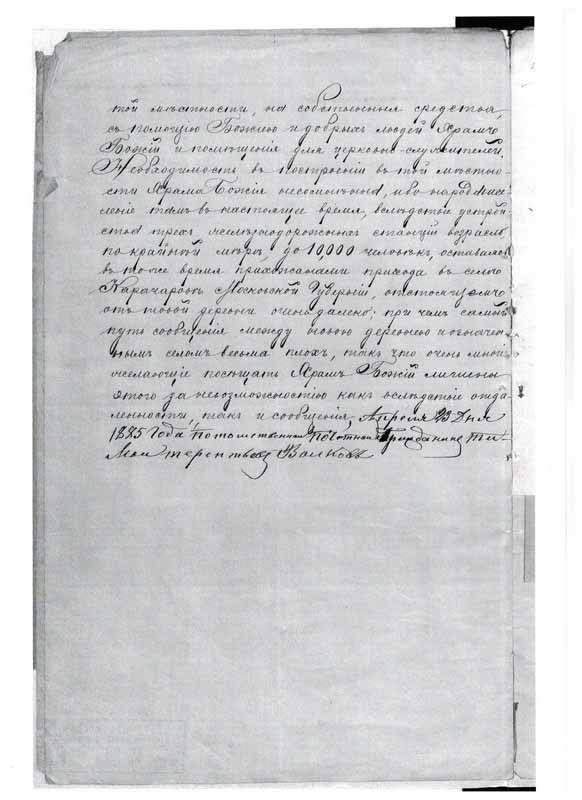 той мѣстности, на собственныя средства,
съ помощію Божіею и добрыхъ людей Храмъ
Божій и помѣщенія для церковно-служителей.
Необходимость въ построеніи въ той мѣстно-
сти Храма Божія несомнѣнна, ибо народонасе-
леніе тамъ въ настоящее время, вслѣдствіе устрой
ства трехъ желѣзнодорожныхъ станцій возрасло
по крайнѣй мѣрѣ, до 10,000 человѣкъ, оставаясь
въ тоже время прихожанами прихода въ селѣ
Карачаровѣ Московской Губерніи, отстоящемъ
отъ деревни очень далеко; при чемъ самый
путь сообщенія между деревнею и означен
нымъ селомъ весьма плохъ, такъ что очень многіе
желающіе посѣщать Храмъ Божій лишены
этого за невозможностію какъ вслѣдствіе отда
ленности, такъ и сообщенія, Апрѣля 23 Дня
1885 Года, Потомственный Почотный Гражданинъ Ти-
Терентьевъ Волковъ